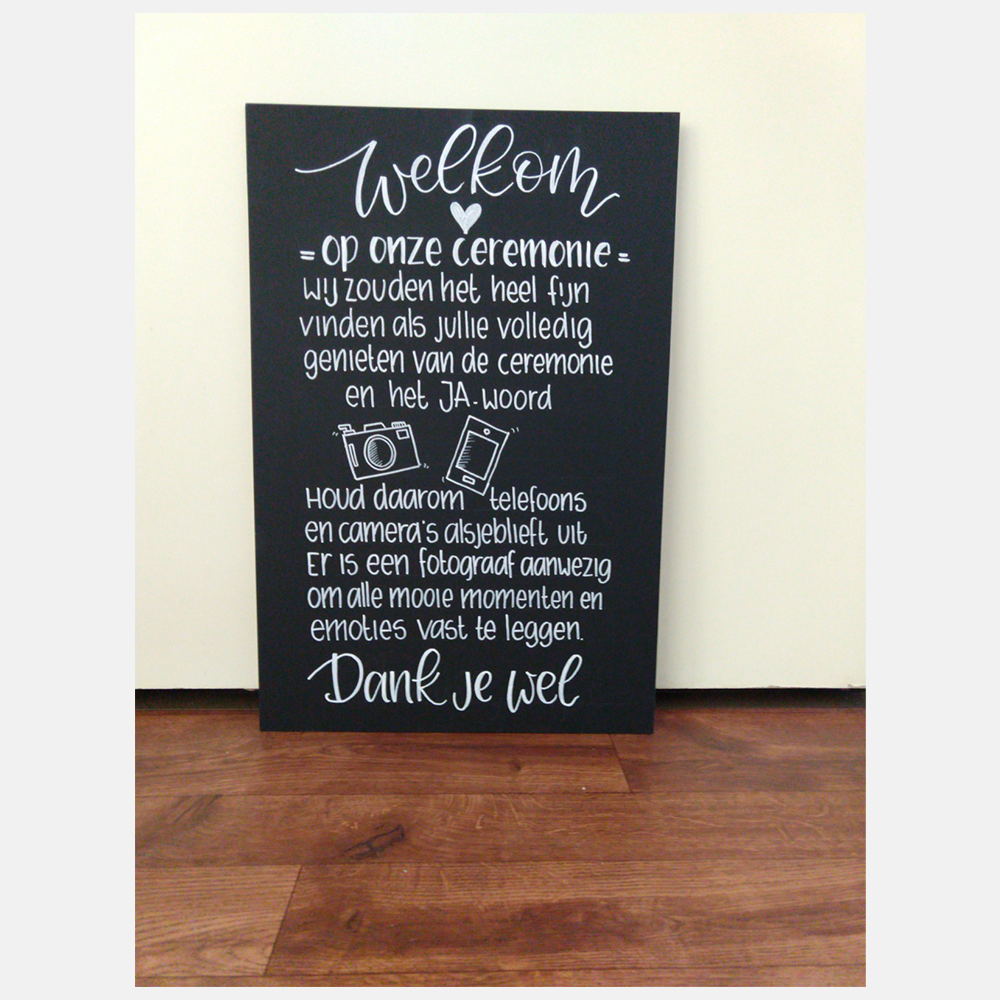 Welkom
= op onze ceremonie =
wij zouden het heel fijn
vinden als jullie volledig
genieten van de ceremonie
en het JA-woord
Houd daarom telefoons
en camera's alsjeblieft uit
Er is een fotograaf aanwezig
om alle mooie momenten en
emoties vast te leggen.
Dank je wel